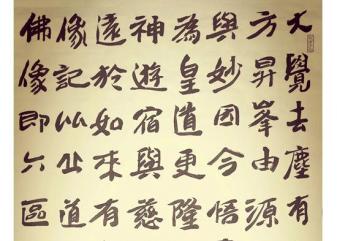 大覺去塵有
方昇峯由源
與妙因今悟
為皇道更隆
神遊宿與慈
遠於如來有
像記以道
佛像即六區